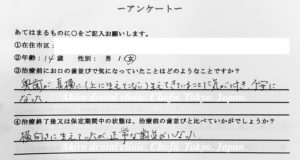 ～アンケート～
あてはまるものに〇をご記入お願いします。
①在住市区：
②年齢：14歳　性別：男 1 女
③治療前にお口の歯並びで気になっていたことはどのようなことですか？
奥歯が真横に(上に生えてない)生えてきていることに気が付き、不安に
なった。
④治療終了後又は保定期間中の状態は、治療前の歯並びと比べていかがでしょうか？
横向きに生えていたが、正常な歯並びになった。
Akira dental clinic. Chofu, Tokyo, Japan.